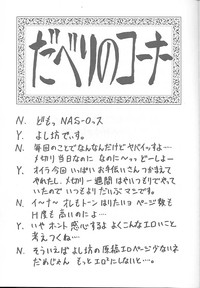 だべりのコーナー
N. どもっ NAS-Oっス
Y. よし坊でぃす。
N. 毎回のことでなんなんだけどヤバイッすよ…
メ切り当日なのに なのに〜っっ どーしよー
Y. オイラ今回 いっぱい お手伝いさん つかまえて
やれたし、メ切り一週間はやいつもりでやって
いたので いつもより だいぶ マシです。
N. イーナ〜 オレもトーン はりたいョ ページ数も
H度も 高いのによ…
Y. いや ホント 感心するよ よくこんなエロいこと
考えつくね…
N. そういえば よし坊の 原稿エロページ少ないネ
だめじゃん もっと エロくしないと…。